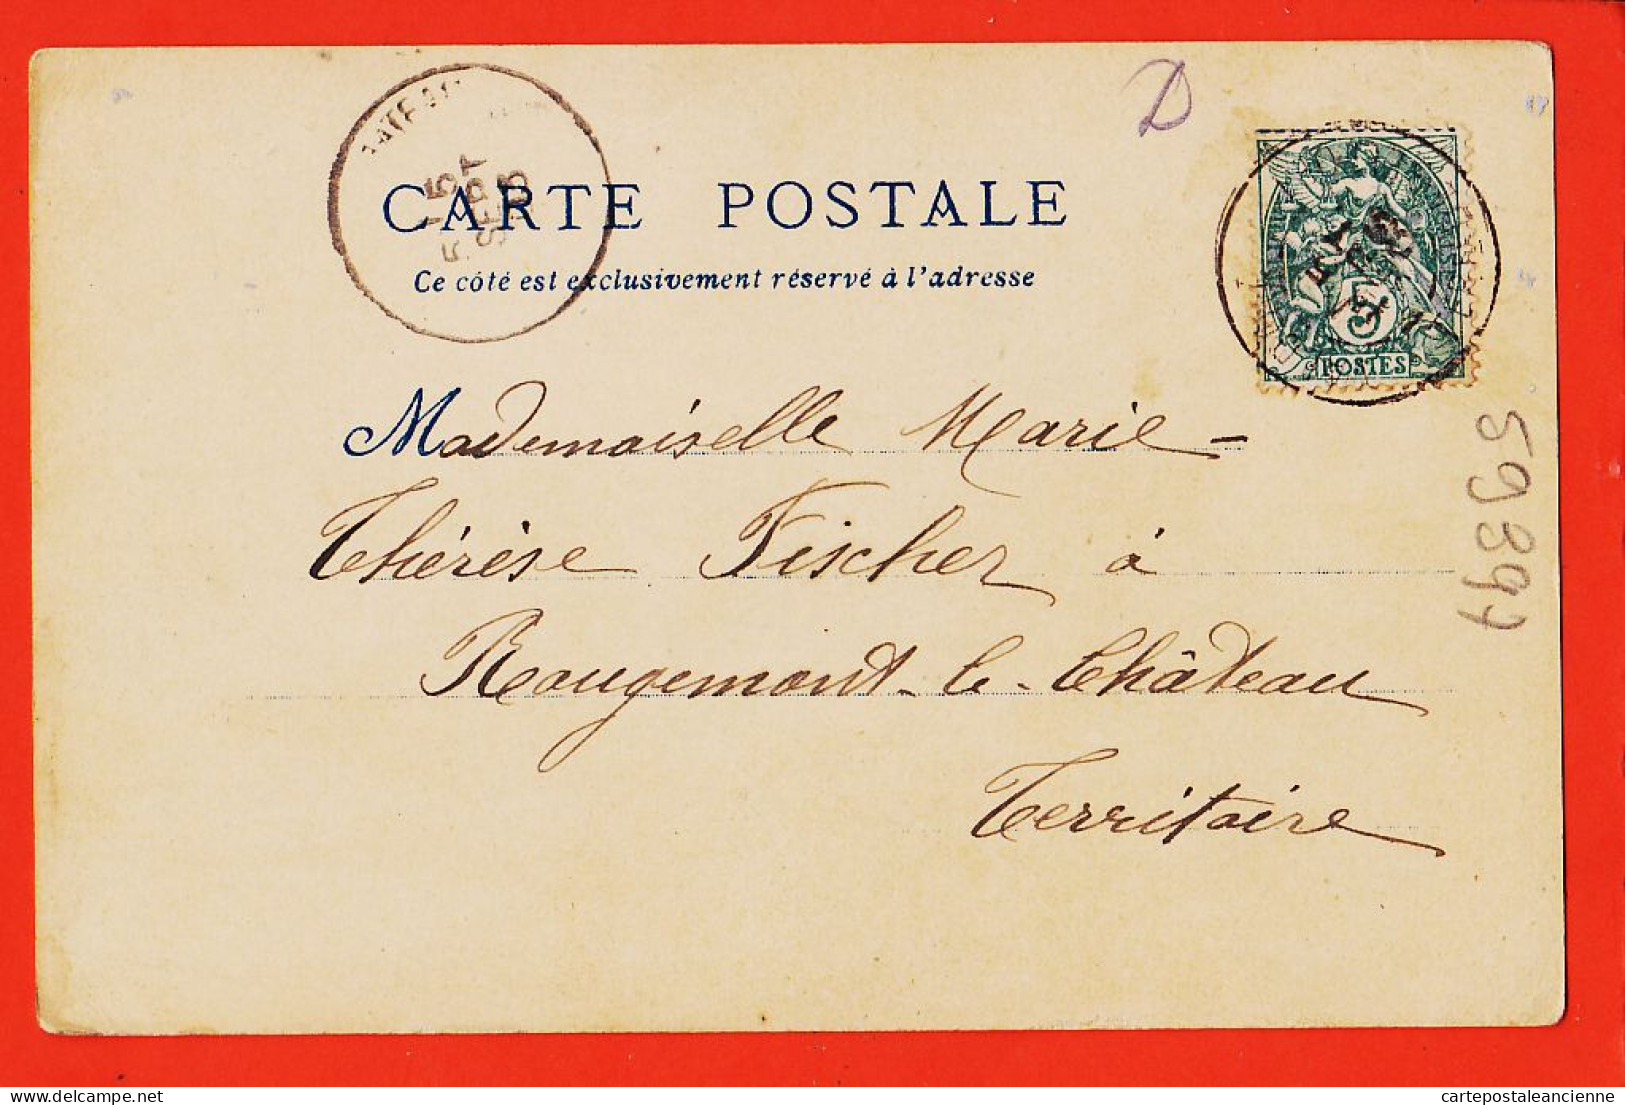 D
CARTE POSTALE
Ce côté est exclusivement réservé à l'adresse
5
POSTES
SEPT
Mademoiselle Marie-
Thérèse Fischer à
Rougemont-le-Château
Territoire
59397
delcampe.net
cartepostaleancienne